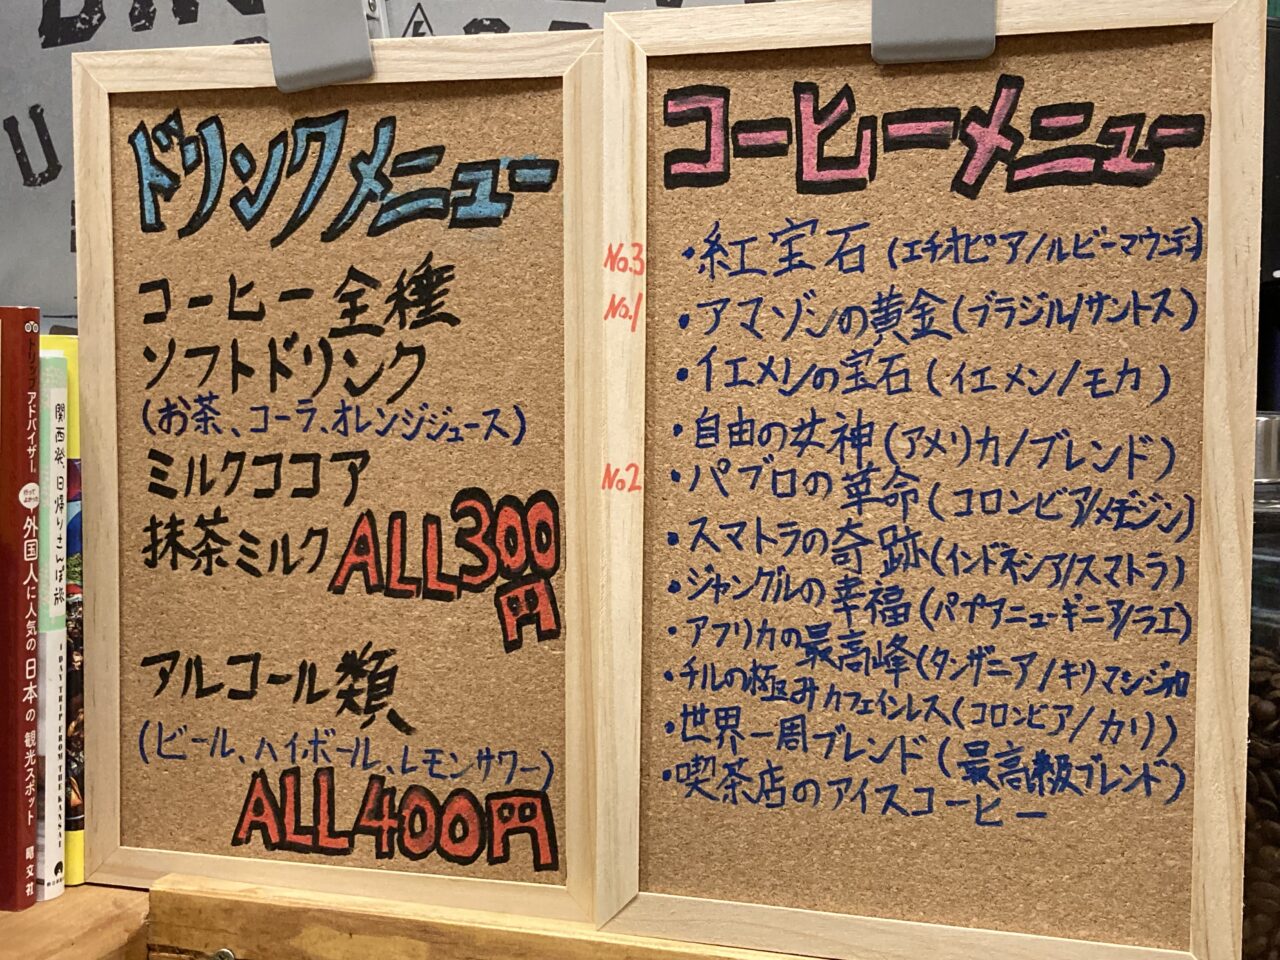 ドリンクメニュー
コーヒー全種
ソフトドリンク
(お茶、コーラ、オレンジジュース)
ミルクココア
抹茶ミルク ALL300円
アルコール類
(ビール、ハイボール、レモンサワー)
ALL400円
コーヒーメニュー
No.3 ・紅宝石(エチオピア/ルビーマウンテン)
No.1 ・アマゾンの黄金(ブラジル/サントス)
・イエメンの宝石(イエメン/モカ)
・自由の女神(アメリカ/ブレンド)
No.2 ・パブロの革命(コロンビア/メデジン)
・スマトラの奇跡(インドネシア/スマトラ)
・ジャングルの幸福(パプアニューギニア/ラエ)
・アフリカの最高峰(タンザニア/キリマンジャロ
・チルの極みカフェインレス(コロンビア/カリ)
・世界一周ブレンド(最高級ブレンド)
・喫茶店のアイスコーヒー
トリップアドバイザー 行ってよかった 外国人に人気の日本の観光スポット 昭文社
関西発、日帰りさんぽ旅
1 DAY TRIP FROM THE KANSAI
U